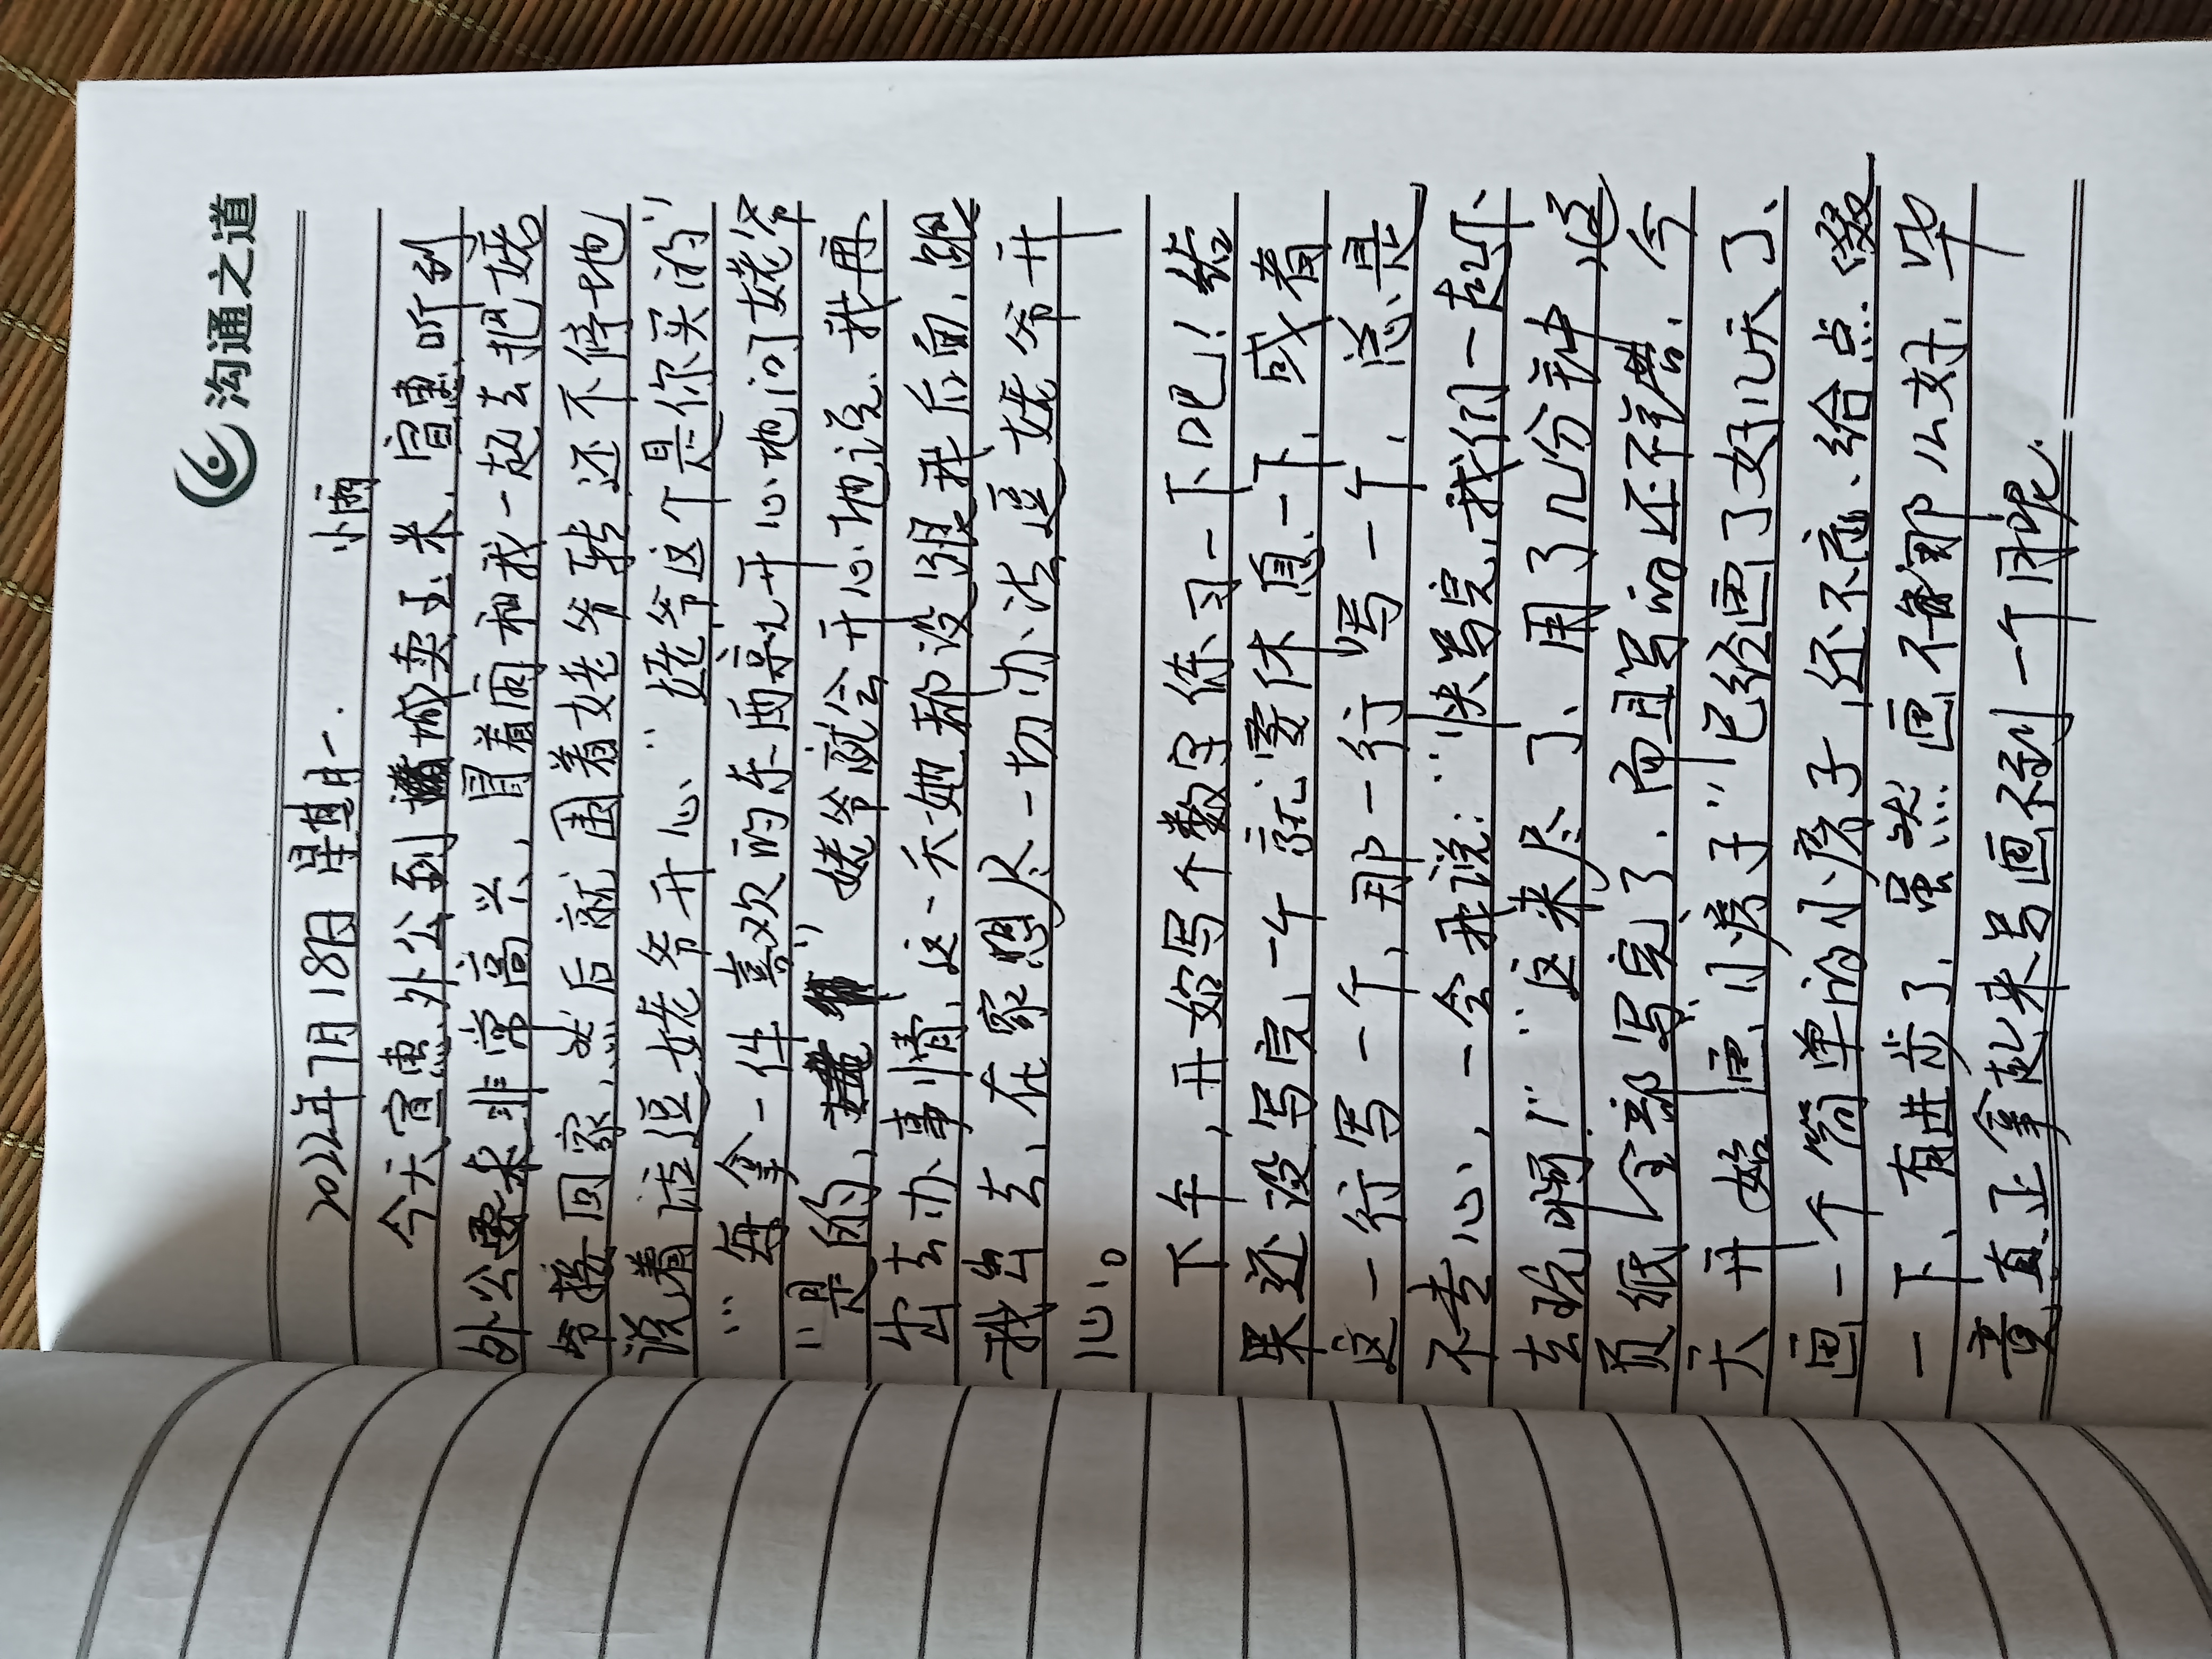 沟通之道
2022年7月18日 星期一. 小雨
今天宣惠外公到城卖玉米、宣惠听到
外公要来非常高兴、冒着雨和我一起去把姥
爷接回家、然后就围着姥爷转还不停地
说着话逗姥爷开心. "姥爷这个是你买的"
… 每拿一件喜欢的东西就开心地问姥爷
"是的," 姥爷就会开心地说. 我再
出去办事情, 这一天她都没跟我后面、跟
我出去, 在家想尽一切办法逗姥爷开
心。
下午, 开始写个数字练习一下吧! 结
果还没写完一个就要休息一下, 或着
这一行写一个, 那一行写一个, 总是
不专心, 一会我说: "快写完, 我们一起下、
去玩啊!" 这来尽了、用了几分钟这
页纸全部写完了. 而且写的还不错. 今
天开始画"小房子"已经画了好几天了、
画一个简单的小房子, 还不忘、给点缀
一下、有进步了、虽然画不到那么好, 毕
竟真正拿起来号画不到一个月呢.